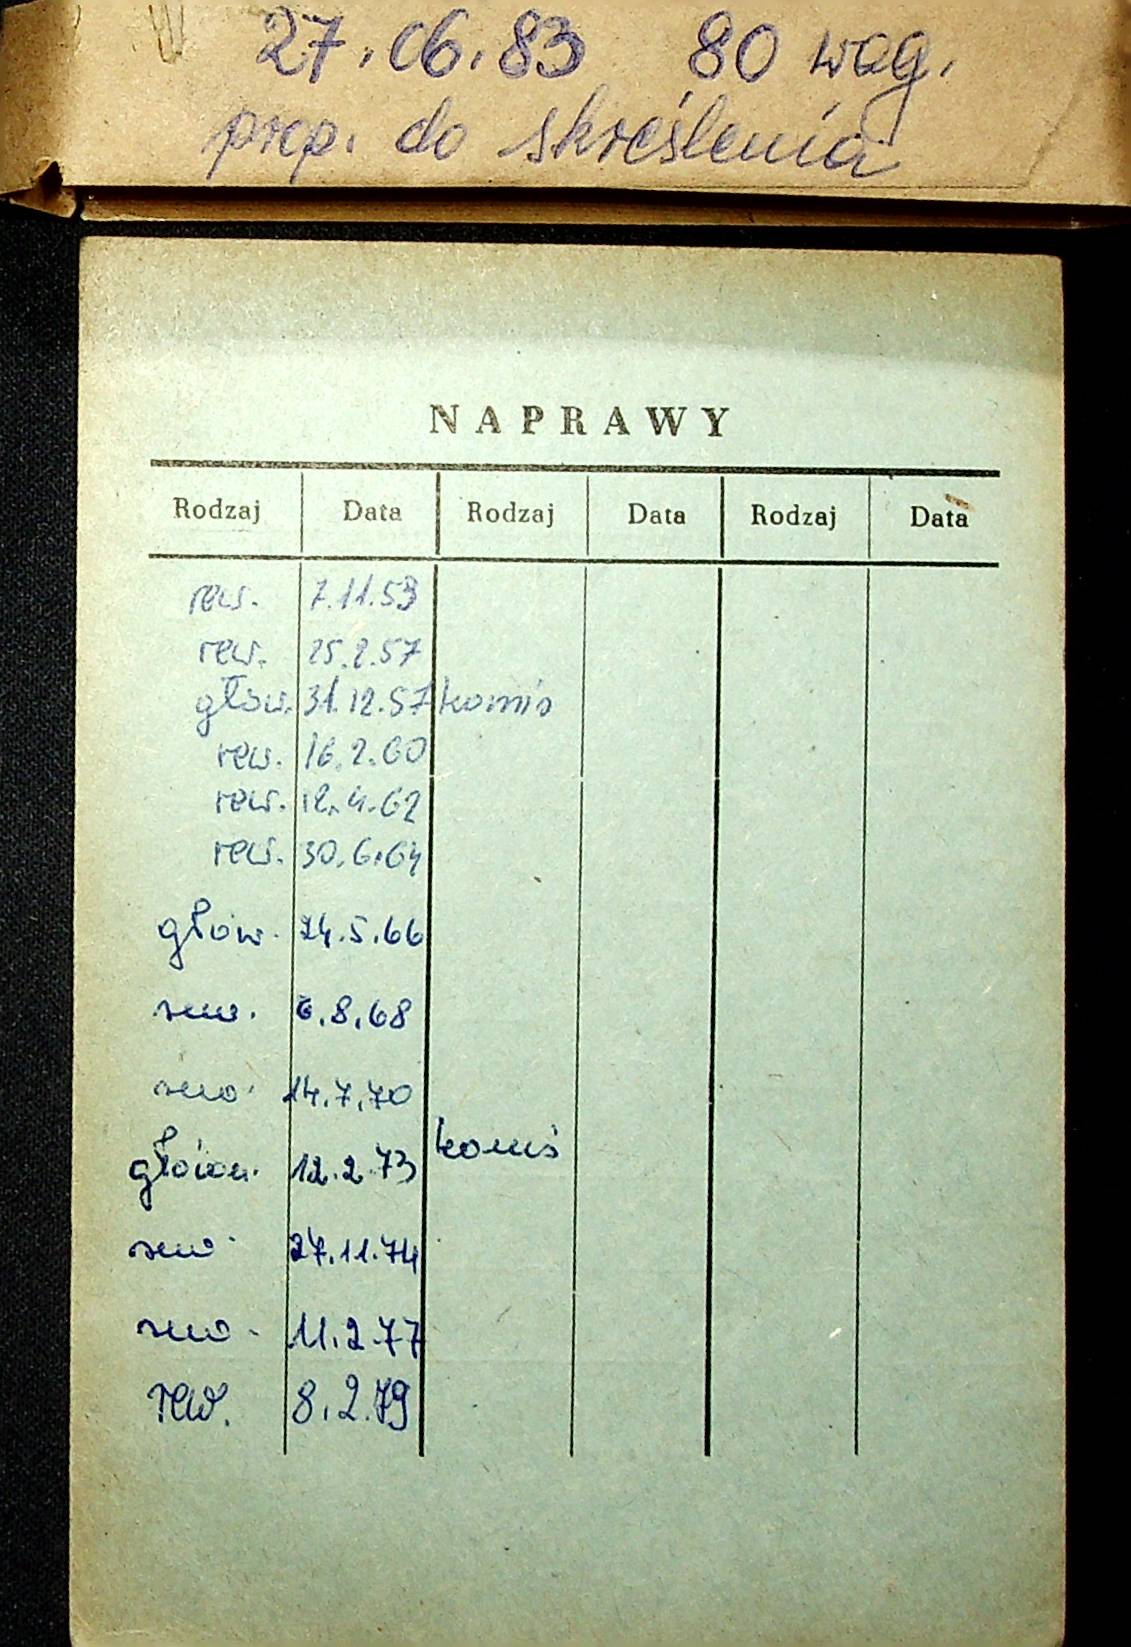 27.06.83 80 wag.
prop. do skreślenia
NAPRAWY
Rodzaj Data Rodzaj Data Rodzaj Data
rew. 7.11.53
rew. 25.2.57
głów. 31.12.57 komis
rew. 16.2.60
rew. 12.4.62
rew. 30.6.64
głów. 24.5.66
rew. 6.8.68
rew. 14.7.70
główn. 12.2.73 komis
rew. 27.11.74
rew. 11.2.77
rew. 8.2.79